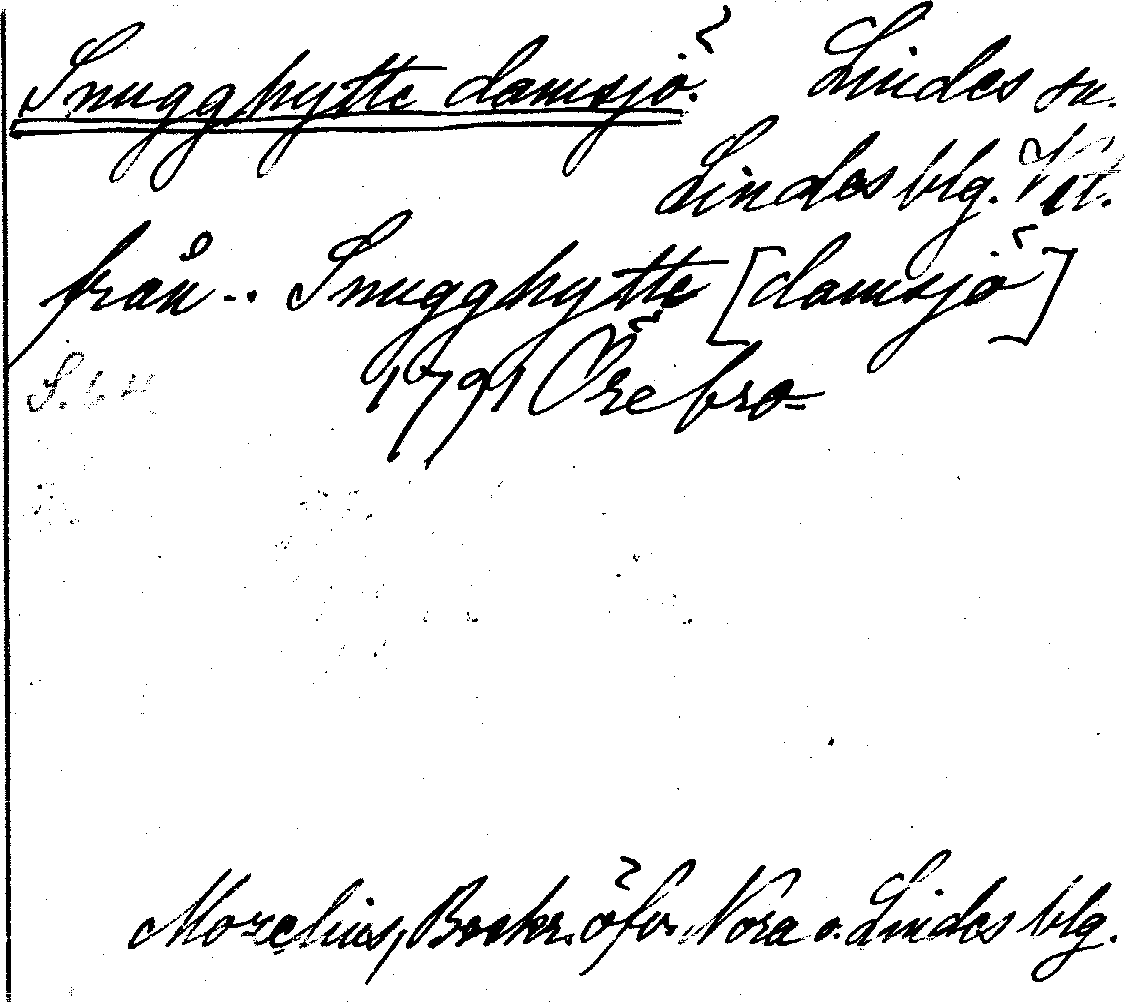 Snugghytte damsjö. Lindes sn.
Lindes blg. Vstl.
från .. Snugghytte [damsjö]
1791 Örebro
Morelius, Beskr. öfv. Nora o. Lindes blg.